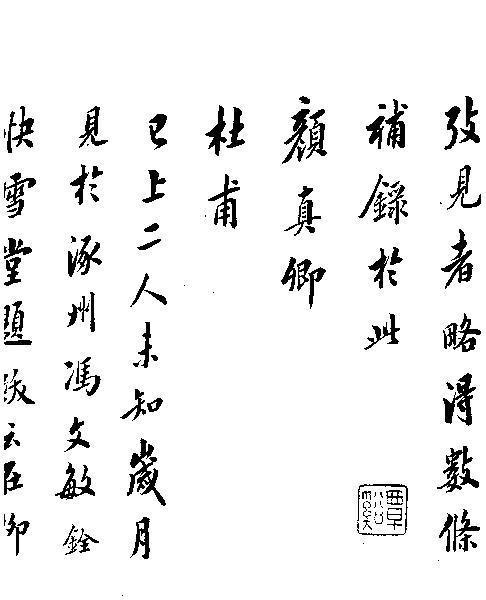 攷見者略得數條
補錄於此
顏真卿
杜甫
已上二人未知歲月
見於涿州馮文敏銓
快雪堂題跋云臣卿